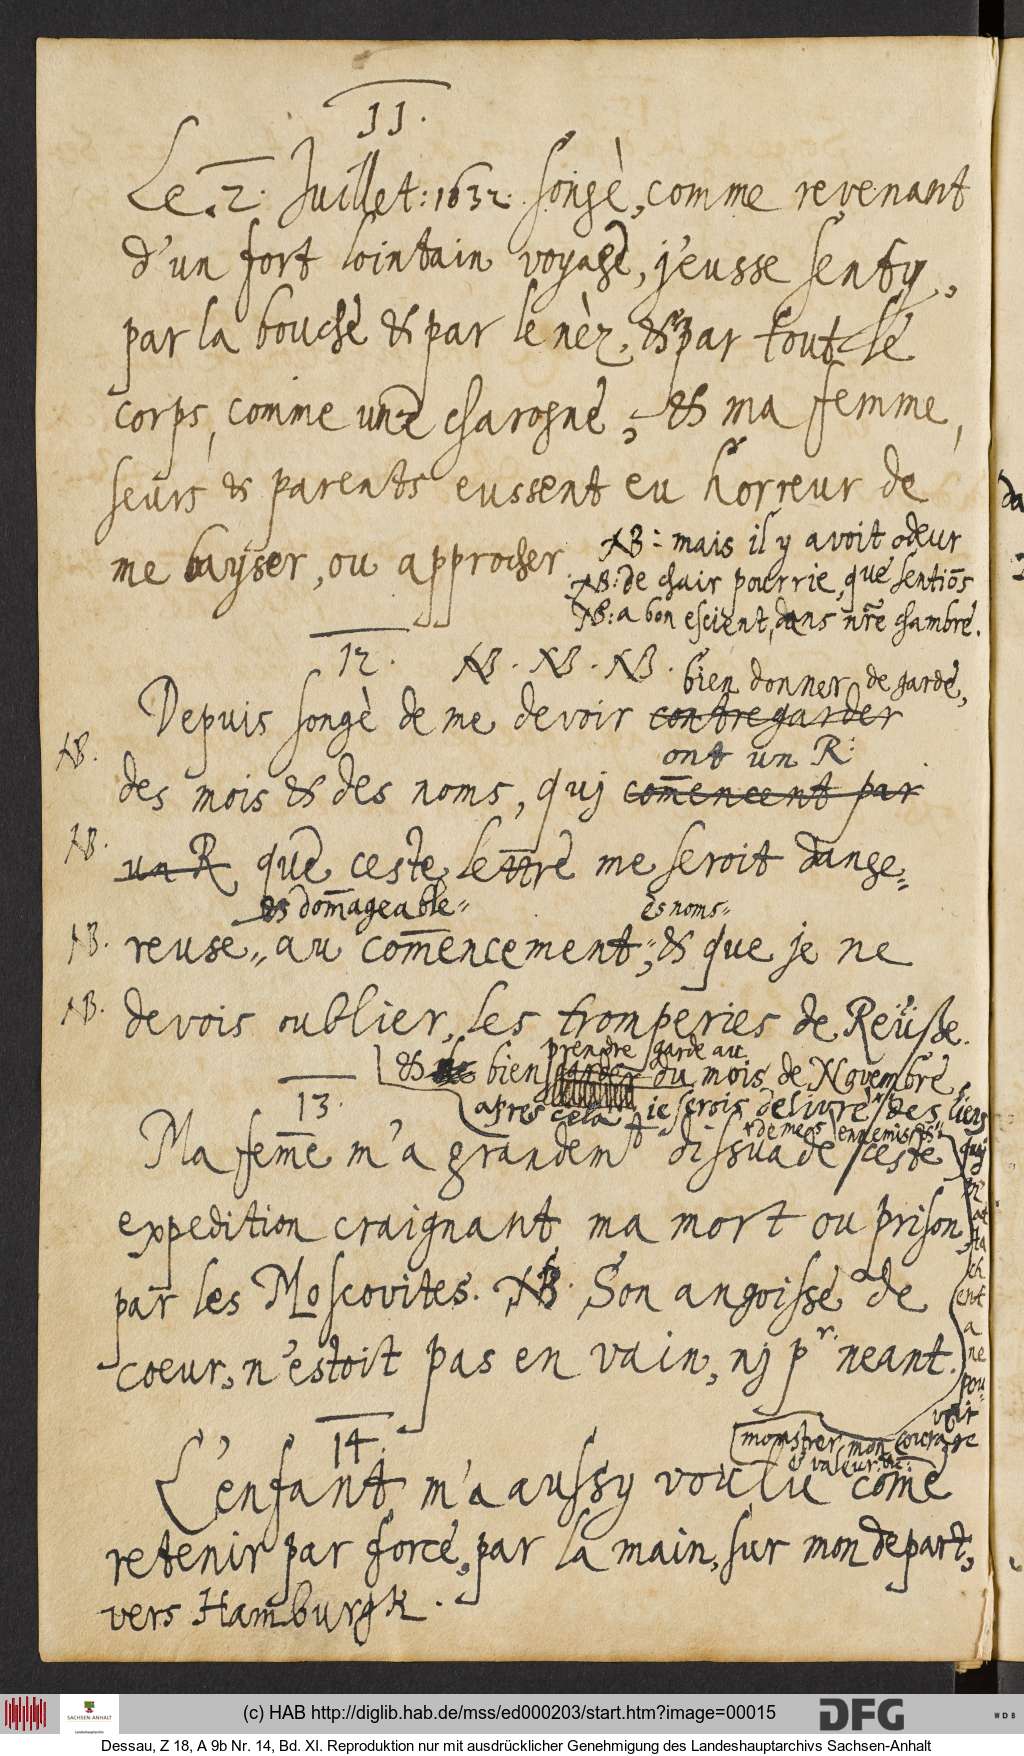 11.
Le. 2. Juillet: 1632. songè, comme revenant
d'un fort lointain voyage, j'eusse senty,
par la bouche & par le nèz, & par tout le
corps, comme une charogne, & ma femme,
seurs & parents eussent eu horreur de
me bayser, ou approcher
NB: mais il y avoit odeur
NB: de chair pourrie, que sentiõs
NB: a bon escient, dans nr̃e chambre.
12. NB. NB. NB.
bien donner de garde,
Depuis songè de me devoir contregarder
ont un R:
NB. des mois & des noms, quj com̄encent par
NB. un R que ceste lettre me seroit dange=
& dom̄ageable= ès noms=
NB. reuse, au com̄encement, & que je ne
NB. devois oublier, les tromperies de Reüße.
prendre garde au
& bien garder du mois de Novembre
apres cela je serois delivrè des liens
de mes ennemis &
quj
m'
at
ta
ch
ent
a
ne
pou=
voir
monstrer mon courage
& valeur etc:
13.
Ma fem̄e m'a grandemt dissuadè ceste
expedition craignant ma mort ou prison
par les Moscovites. NB. Son angoisse de
coeur, n'estoit pas en vain, nj pr. neant.
14.
L'enfant m'a aussy voulu com̄e
retenir par force, par la main, sur mon depart,
vers Hamburgk.
(c) HAB http://diglib.hab.de/mss/ed000203/start.htm?image=00015
SACHSEN-ANHALT
Landeshauptarchiv
DFG
WDB
Dessau, Z 18, A 9b Nr. 14, Bd. XI. Reproduktion nur mit ausdrücklicher Genehmigung des Landeshauptarchivs Sachsen-Anhalt